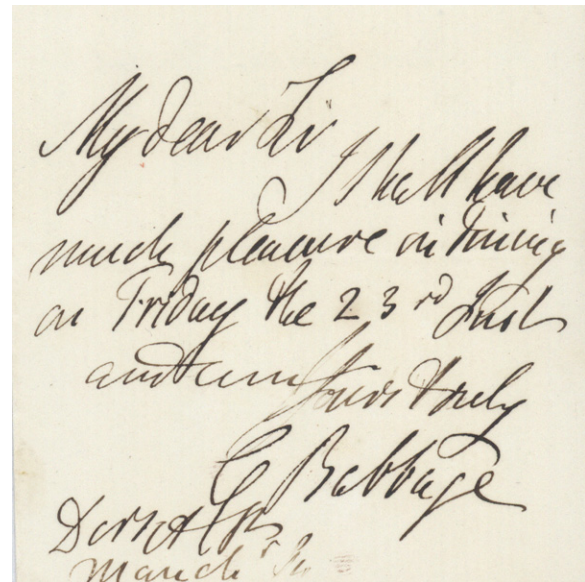 My dear Sir
I shall have
much pleasure in dining
on Friday the 23rd Inst
and am
Yours truly
C Babbage
Dorset
March